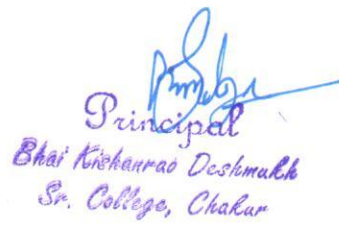 Principal
Bhai Kishanrao Deshmukh
Sr. College, Chakur